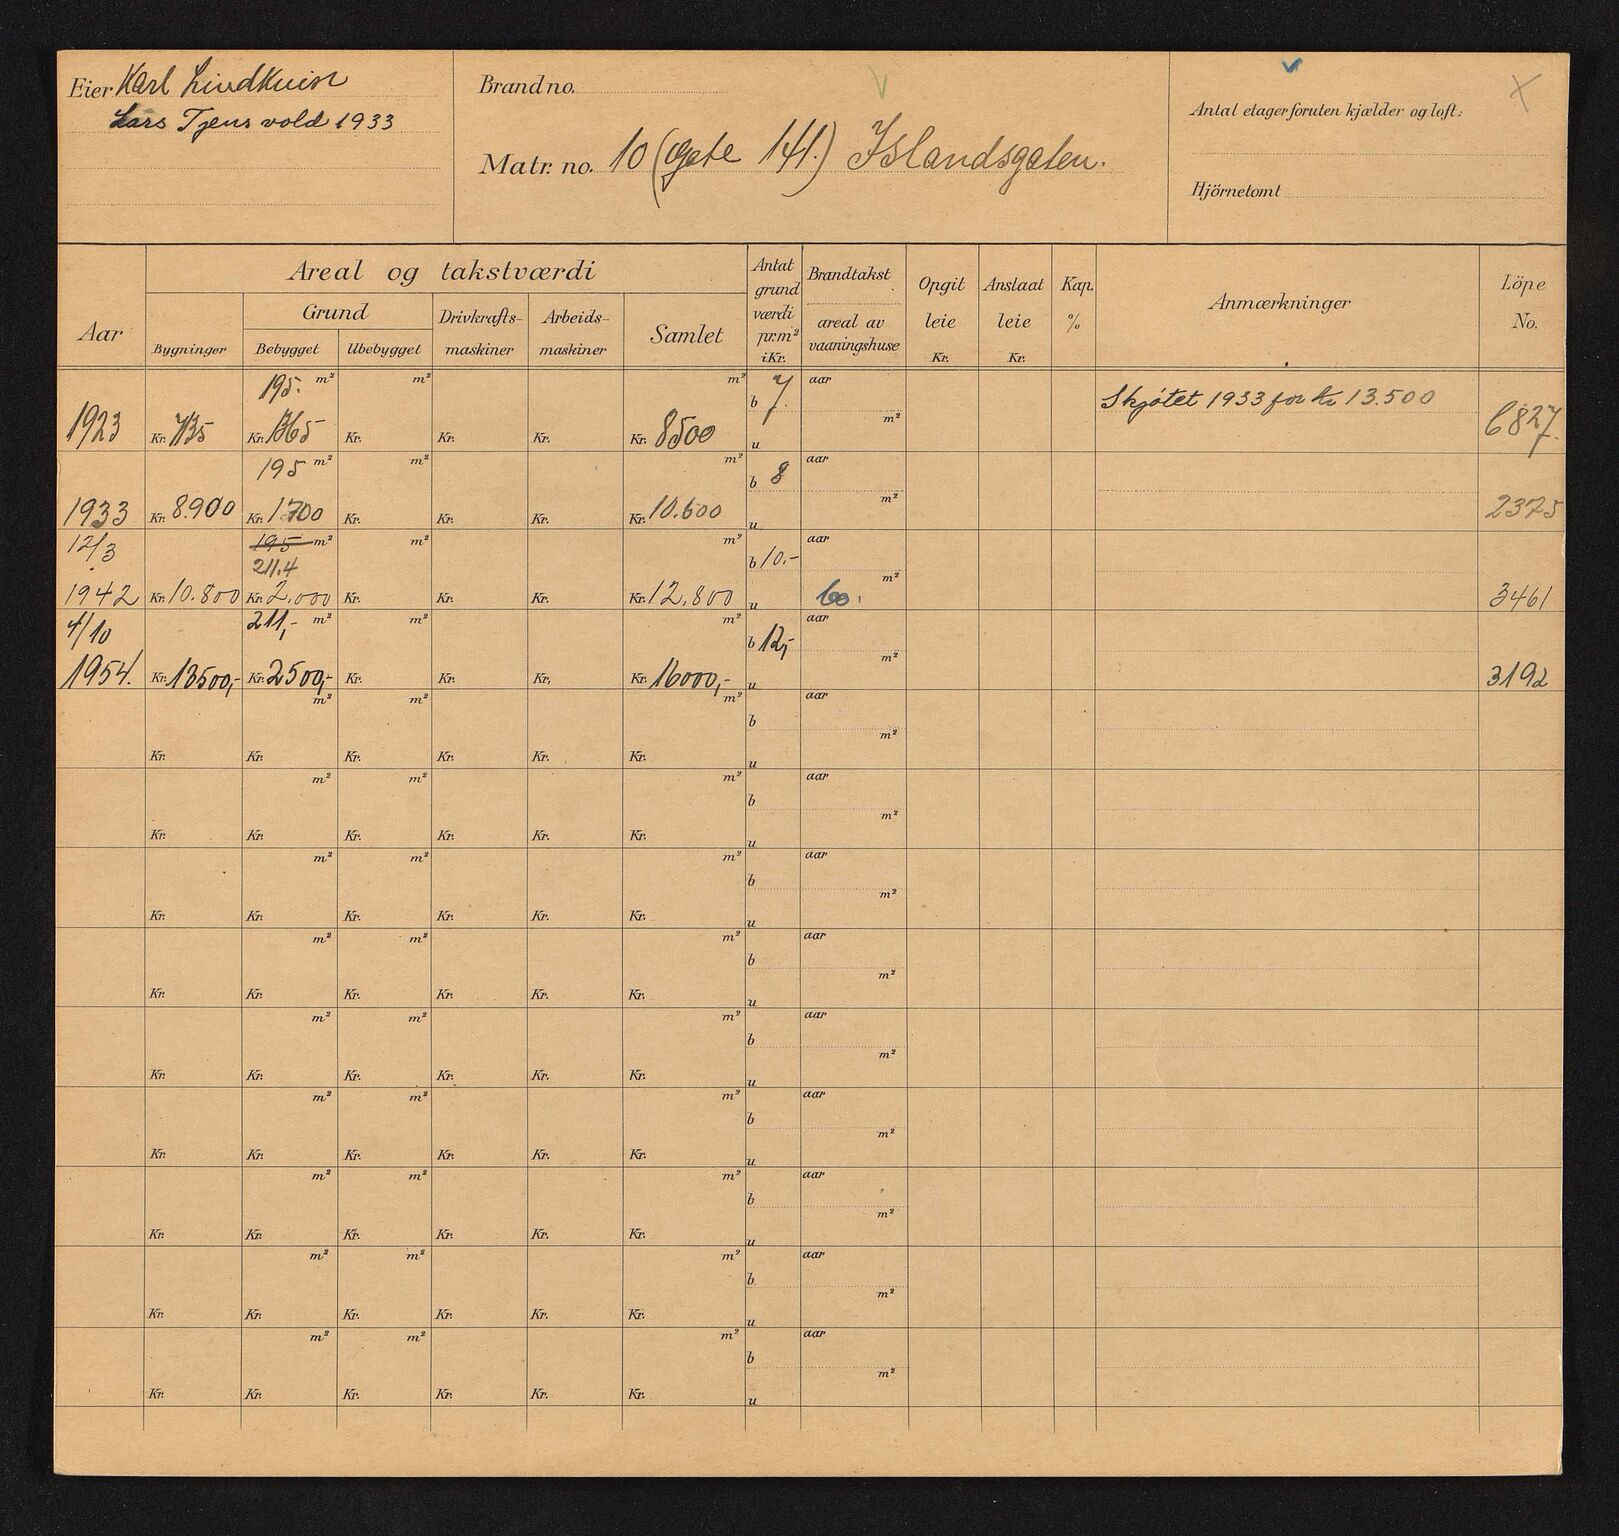 Eier Karl Lindkvist
Lars Tjensvold 1933
Brand no.
Matr. no. 10 (Gate 141.) Islandsgaten.
Antal etager foruten kjælder og loft:
Hjörnetomt
Aar
Areal og takstværdi
Grund
Bygninger
Bebygget
Ubebygget
Drivkrafts-
maskiner
Arbeids-
maskiner
Samlet
Antat
grund
værdi
pr. m²
i Kr.
Brandtakst
areal av
vaaningshuse
Opgit
leie
Kr.
Anslaat
leie
Kr.
Kap.
%
Anmærkninger
Löpe
No.
195. m² m² m² b 7. aar Skjøtet 1933 for kr 13.500
1923 Kr. 7135 Kr. 1365 Kr. Kr. Kr. Kr. 8500 u m² 6827.
195 m² m² m² b 8 aar
1933 Kr. 8.900 Kr. 1700 Kr. Kr. Kr. Kr. 10.600 u m² 2375
12/3 195 m² m² m² b 10.- aar
211.4
1942 Kr. 10.800 Kr. 2.000 Kr. Kr. Kr. Kr. 12.800 u m² 3461
4/10 211,- m² m² m² b 12,- aar
1954. Kr. 13500,- Kr. 2500,- Kr. Kr. Kr. Kr. 16000,- u m² 3192
m² m² m² b aar
Kr. Kr. Kr. Kr. Kr. Kr. u m²
m² m² m² b aar
Kr. Kr. Kr. Kr. Kr. Kr. u m²
m² m² m² b aar
Kr. Kr. Kr. Kr. Kr. Kr. u m²
m² m² m² b aar
Kr. Kr. Kr. Kr. Kr. Kr. u m²
m² m² m² b aar
Kr. Kr. Kr. Kr. Kr. Kr. u m²
m² m² m² b aar
Kr. Kr. Kr. Kr. Kr. Kr. u m²
m² m² m² b aar
Kr. Kr. Kr. Kr. Kr. Kr. u m²
m² m² m² b aar
Kr. Kr. Kr. Kr. Kr. Kr. u m²
m² m² m² b aar
Kr. Kr. Kr. Kr. Kr. Kr. u m²